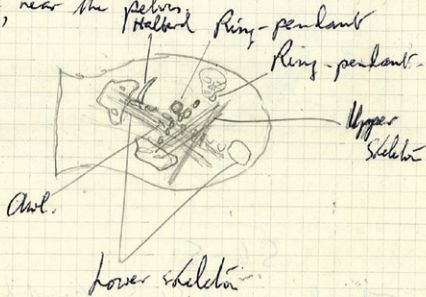 , near the pelvis.
Halberd
Ring-pendant
Ring-pendant.
Upper
skeleton
Awl.
Lower skeleton